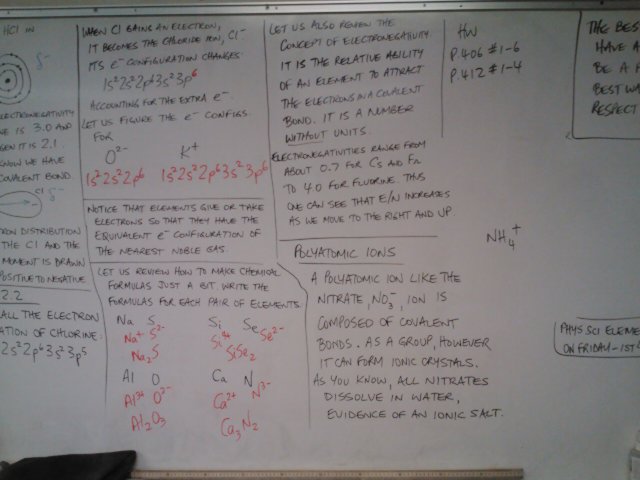 HCl IN
δ-
ELECTRONEGATIVITY
NE IS 3.0 AND
GEN IT IS 2.1.
KNOW WE HAVE
COVALENT BOND.
Cl δ-
RON DISTRIBUTION
THE Cl AND THE
MOMENT IS DRAWN
POSITIVE TO NEGATIVE
2.2
ALL THE ELECTRON
ATION OF CHLORINE:
2s²2p⁶3s²3p⁵
WHEN Cl GAINS AN ELECTRON,
IT BECOMES THE CHLORIDE ION, Cl⁻
ITS e⁻ CONFIGURATION CHANGES:
1s²2s²2p⁶3s²3p⁶
ACCOUNTING FOR THE EXTRA e⁻.
LET US FIGURE THE e⁻ CONFIGS.
FOR
O²⁻ K⁺
1s²2s²2p⁶ 1s²2s²2p⁶3s²3p⁶
NOTICE THAT ELEMENTS GIVE OR TAKE
ELECTRONS SO THAT THEY HAVE THE
EQUIVALENT e⁻ CONFIGURATION OF
THE NEAREST NOBLE GAS.
LET US REVIEW HOW TO MAKE CHEMICAL
FORMULAS JUST A BIT. WRITE THE
FORMULAS FOR EACH PAIR OF ELEMENTS.
Na S Si Se
Na⁺ S²⁻ Si⁴⁺ Se²⁻
Na₂S SiSe₂
Al O Ca N
Al³⁺ O²⁻ Ca²⁺ N³⁻
Al₂O₃ Ca₃N₂
LET US ALSO REVIEW THE
CONCEPT OF ELECTRONEGATIVITY
IT IS THE RELATIVE ABILITY
OF AN ELEMENT TO ATTRACT
THE ELECTRONS IN A COVALENT
BOND. IT IS A NUMBER
WITHOUT UNITS.
ELECTRONEGATIVITIES RANGE FROM
ABOUT 0.7 FOR Cs AND Fr
TO 4.0 FOR FLUORINE. THUS
ONE CAN SEE THAT E/N INCREASES
AS WE MOVE TO THE RIGHT AND UP.
POLYATOMIC IONS
A POLYATOMIC ION LIKE THE
NITRATE, NO₃⁻, ION IS
COMPOSED OF COVALENT
BONDS. AS A GROUP, HOWEVER
IT CAN FORM IONIC CRYSTALS.
AS YOU KNOW, ALL NITRATES
DISSOLVE IN WATER,
EVIDENCE OF AN IONIC SALT.
HW
P.406 #1-6
P.412 #1-4
NH₄⁺
THE BES
HAVE A
BE A
BEST WA
RESPECT
PHYS SCI ELEME
ON FRIDAY-1ST